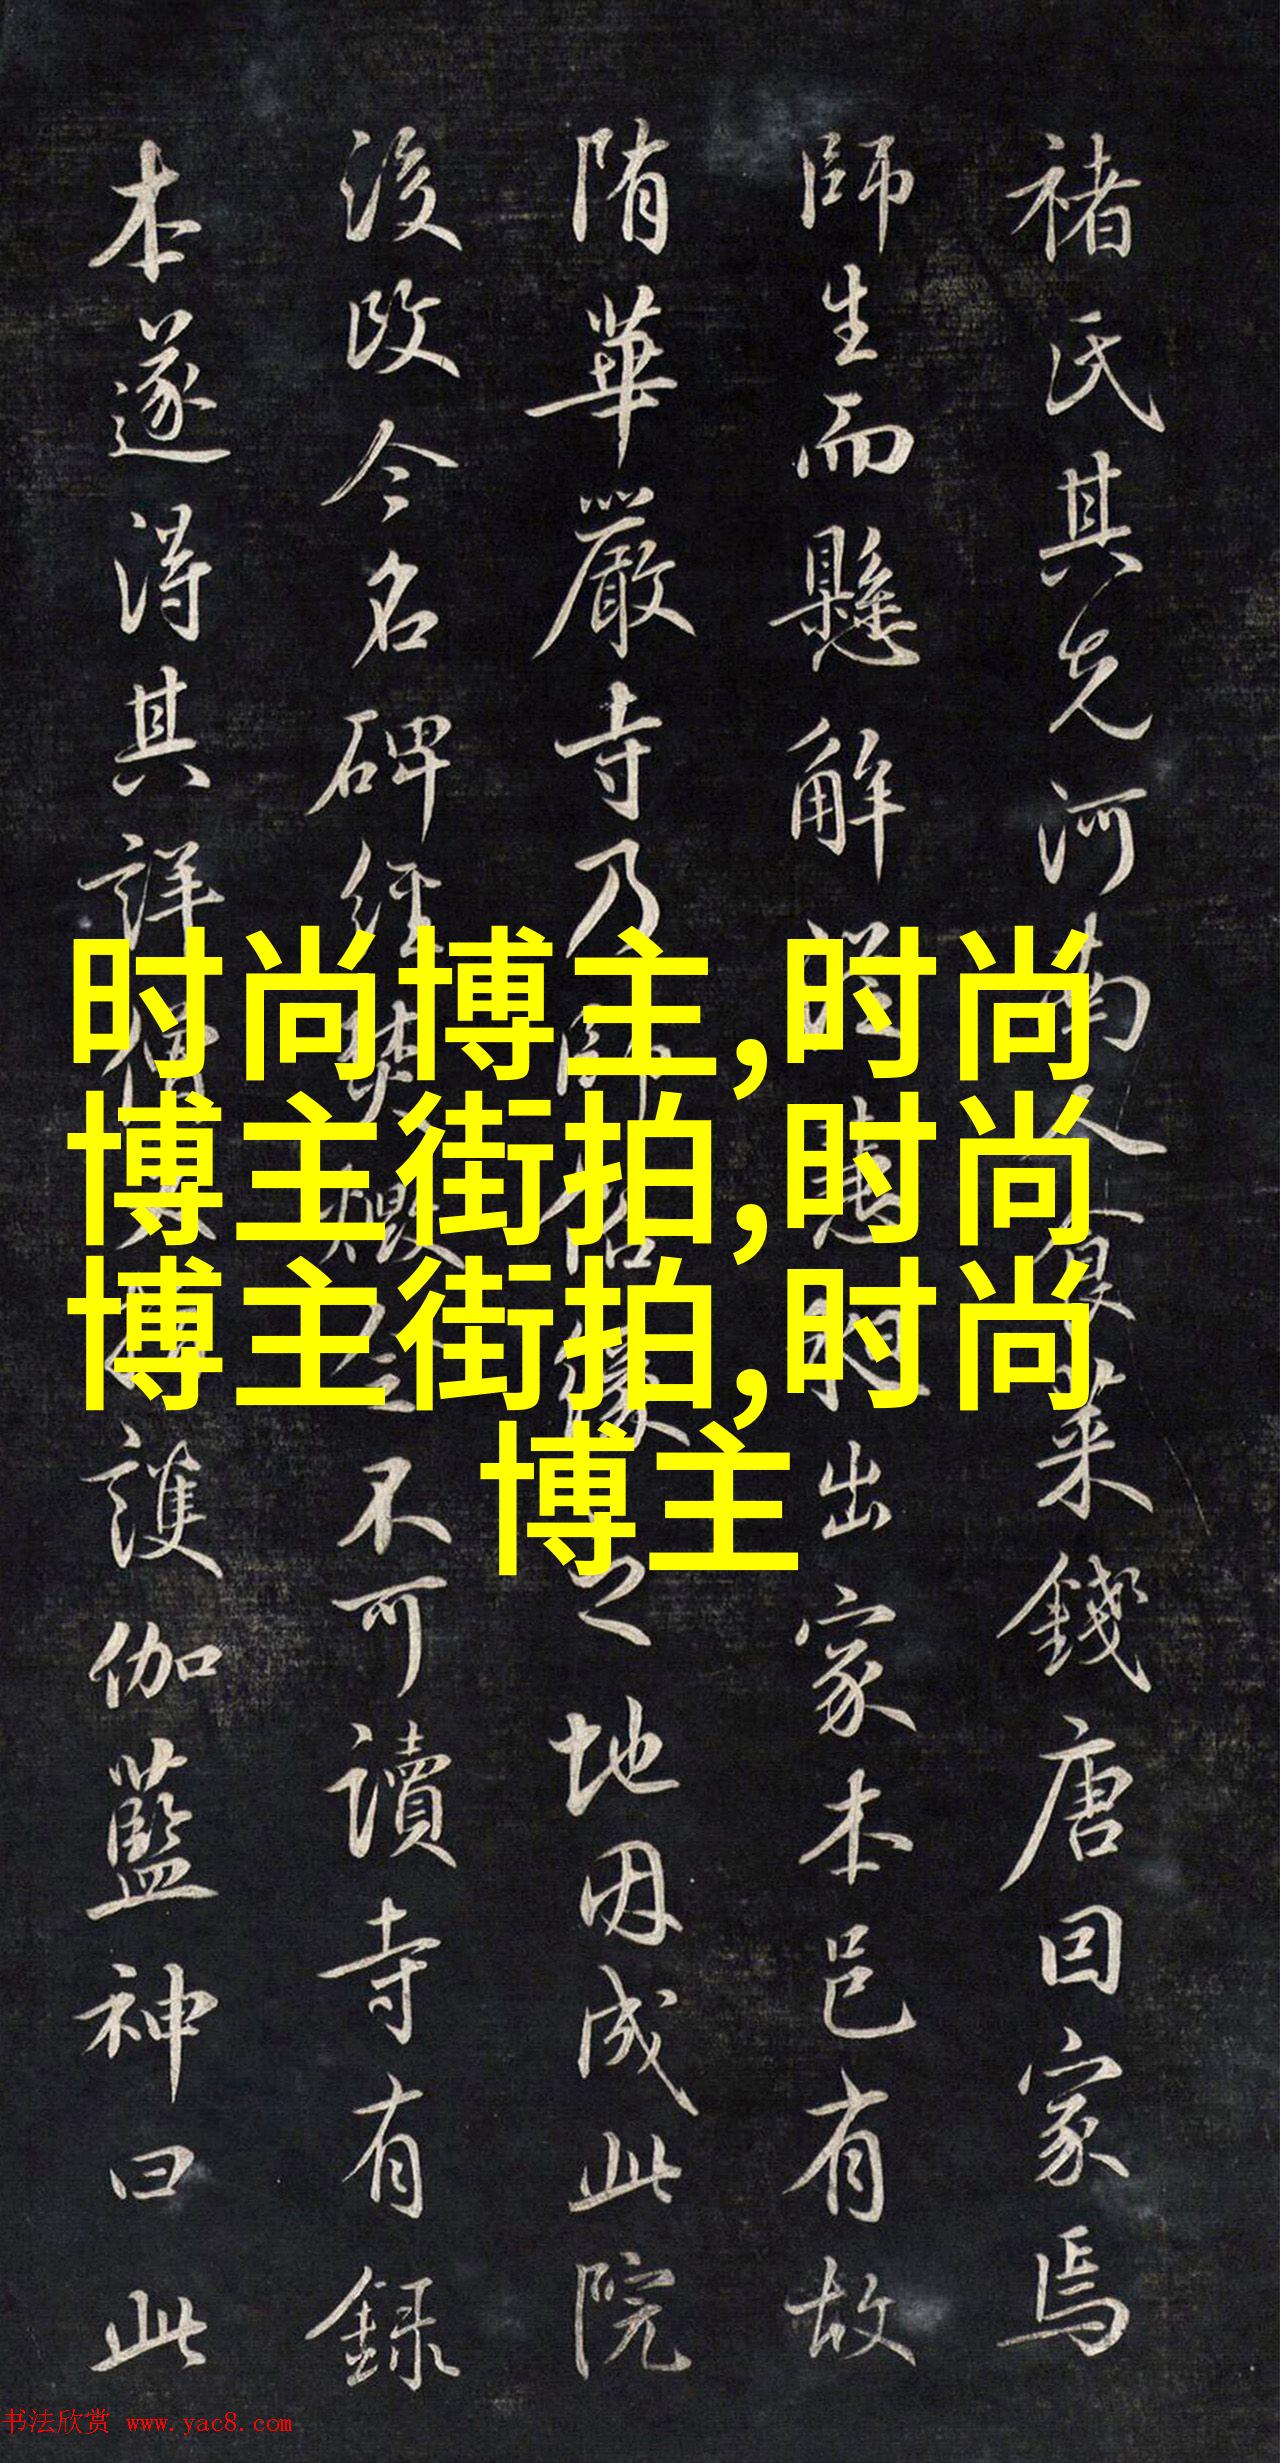 褚氏其先河南人食菜錢唐因家焉
師生而懸解
出家本邑有故
隋華嚴寺乃
之地因成此院
後改今名碑經
不可讀寺有錄
本遂得其詳
護伽藍神曰此
时尚博主,时尚
博主街拍,时尚
博主街拍,时尚
博主
书法欣赏 www.yac8.com